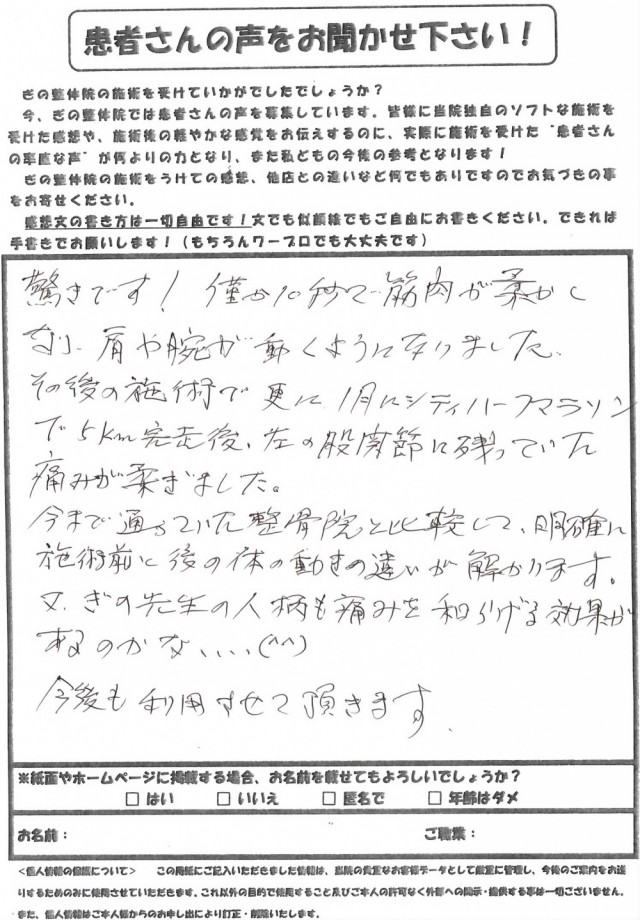 患者さんの声をお聞かせ下さい！
ぎの整体院の施術を受けていかがでしたでしょうか？
今、ぎの整体院では患者さんの声を募集しています。皆様に当院独自のソフトな施術を
受けた感想や、施術後の軽やかな感覚をお伝えするのに、実際に施術を受けた“患者さん
の率直な声”が何よりの力となり、また私どもの今後の参考となります！
ぎの整体院の施術をうけての感想、他店との違いなど何でもありですのでお気づきの事
をお寄せください。
感想文の書き方は一切自由です！文でも似顔絵でもご自由にお書きください。できれば
手書きでお願いします！（もちろんワープロでも大丈夫です）
驚きです！ 僅か10秒で筋肉が柔かく
なり、肩や腕が動くようになりました。
その後の施術で更に1月にシティハーフマラソン
で5km完走後、左の股関節に残っていた
痛みが柔ぎました。
今まで通っていた整骨院と比較して、明確に
施術前と後の体の動きの違いが解かります。
又、ぎの先生の人柄も痛みを和らげる効果が
あるのかな、、、、(^^)
今後も利用させて頂きます。
※紙面やホームページに掲載する場合、お名前を載せてもよろしいでしょうか？
□ はい □ いいえ □ 匿名で □ 年齢はダメ
お名前： ご職業：
＜個人情報の保護について＞ この用紙にご記入いただきました情報は、当院の貴重なお客様データとして厳重に管理し、今後のご案内をお送
りするためのみに使用させていただきます。これ以外の目的で使用すること及びご本人の許可なく外部への開示・提供する事は一切ございません。
また、個人情報はご本人様からのお申し出により訂正・削除いたします。